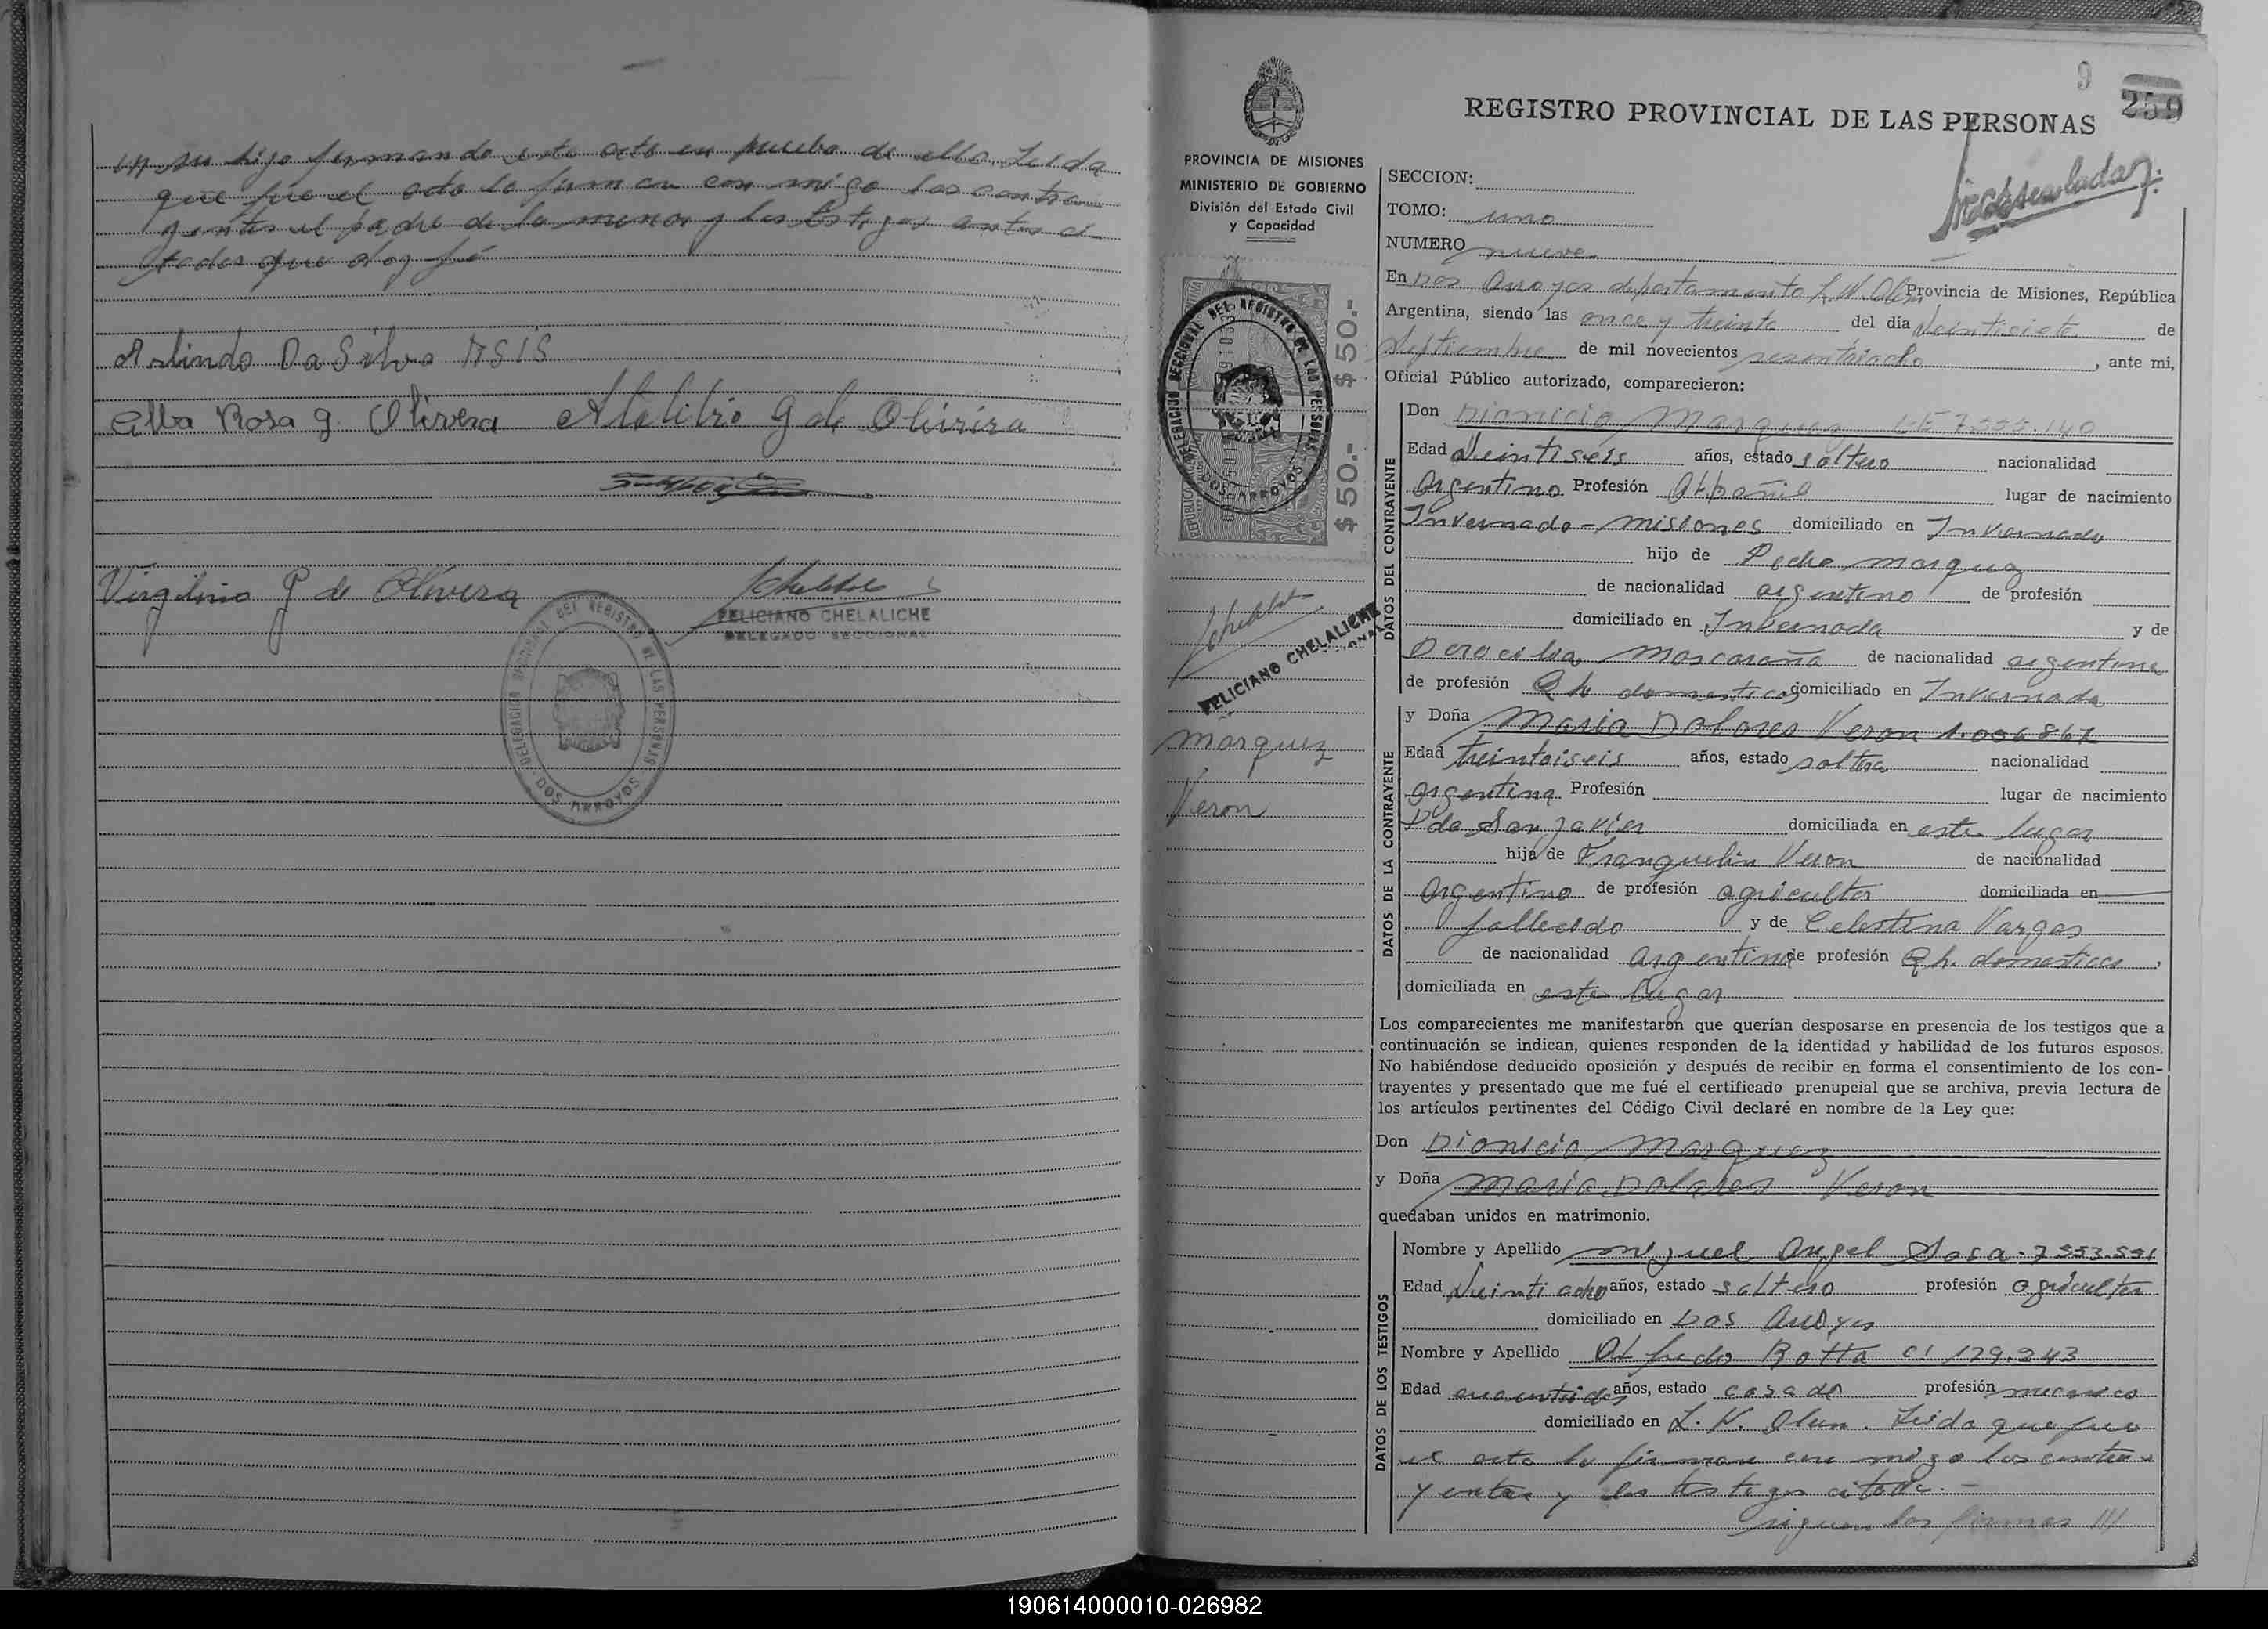 su hijo firmando este acto en prueba de ello. Leida
que fue el acta la firman con migo los contra
yentes el padre de la menor y los testigos antes ci
tados que doy fé
Arlindo Da Silva ASIS
Alba Rosa g. Olivera
g de Olivira
Virgilino g de Olivera
FELICIANO CHELALICHE
DELEGADO SECCIONAL
DELEGACION SECCIONAL DEL REGISTRO DE LAS PERSONAS
DOS ARROYOS
9
259
REGISTRO PROVINCIAL DE LAS PERSONAS
PROVINCIA DE MISIONES
MINISTERIO DE GOBIERNO
División del Estado Civil
y Capacidad
$ 50.-
$ 50.-
DELEGACION SECCIONAL DEL REGISTRO DE LAS PERSONAS
DOS ARROYOS
FELICIANO CHELALICHE
Marquez
Veron
SECCION:
TOMO: uno
NUMERO nueve
En Dos Arroyos departamento L.N. Alem Provincia de Misiones, República
Argentina, siendo las once y treinta del día veintisiete de
septiembre de mil novecientos sesentaiocho, ante mi,
Oficial Público autorizado, comparecieron:
DATOS DEL CONTRAYENTE
Don Dionicio Marquez LE 7.555.140
Edad Veintiseis años, estado soltero nacionalidad
Argentino Profesión Albañil lugar de nacimiento
Invernada - Misiones domiciliado en Invernada
hijo de Pedro Marquez
de nacionalidad argentino de profesión
domiciliado en Invernada y de
Mascaraña de nacionalidad argentina
de profesión Q h domesticos domiciliado en Invernada
DATOS DE LA CONTRAYENTE
y Doña Maria Dolores Veron 1.056867
Edad treintaiseis años, estado soltera nacionalidad
Argentina Profesión lugar de nacimiento
Pto San Javier domiciliada en este lugar
hija de Franquelin Veron de nacionalidad
Argentino de profesión agricultor domiciliada en
fallecido y de Celestina Vargas
de nacionalidad Argentina de profesión Q h. domesticos,
domiciliada en este lugar
Los comparecientes me manifestaron que querían desposarse en presencia de los testigos que a
continuación se indican, quienes responden de la identidad y habilidad de los futuros esposos.
No habiéndose deducido oposición y después de recibir en forma el consentimiento de los con-
trayentes y presentado que me fué el certificado prenupcial que se archiva, previa lectura de
los artículos pertinentes del Código Civil declaré en nombre de la Ley que:
Don Dionicio Marquez
y Doña Maria Dolores Veron
quedaban unidos en matrimonio.
DATOS DE LOS TESTIGOS
Nombre y Apellido Miguel Angel Sosa. 7553.591
Edad Veintiocho años, estado soltero profesión agricultor
domiciliado en Dos Arroyos
Nombre y Apellido Alfredo Botta CI 129.243
Edad años, estado casado profesión mecanico
domiciliado en L. N. Alem. Leida que fue
el acta la firman con migo los contra
yentes y los testigos citado. -
siguen las firmas ///
190614000010-026982